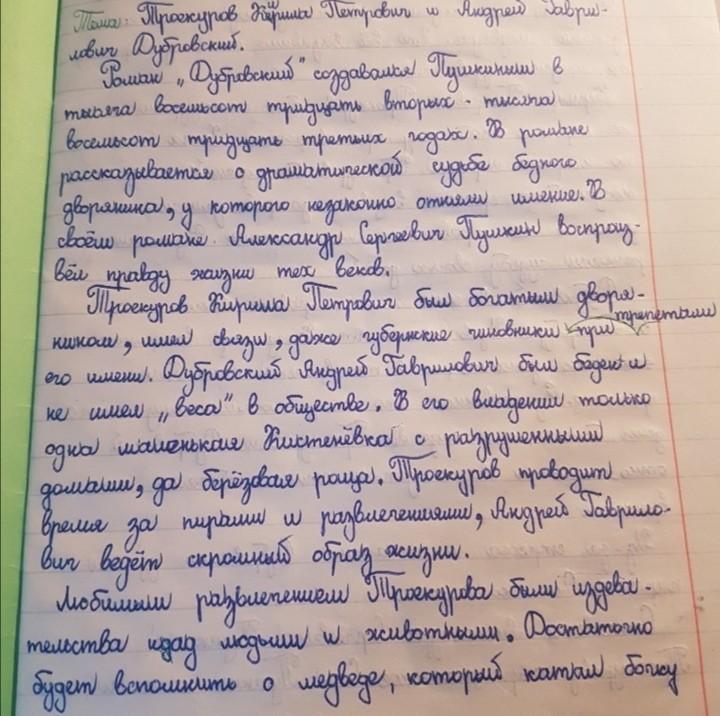 Тема: Троекуров Кирила Петрович и Андрей Гаври-
лович Дубровский.
Роман „Дубровский" создавался Пушкиным в
тысяча восемьсот тридцать вторых - тысяча
восемьсот тридцать третьих годах. В романе
рассказывается о драматической судьбе бедного
дворянина, у которого незаконно отняли имение. В
своём романе Александр Сергеевич Пушкин воспроиз-
вёл правду жизни тех веков.
Троекуров Кирила Петрович был богатым дворя-
трепетали
нином, имел связи, даже губернские чиновники при
его имени. Дубровский Андрей Гаврилович был беден и
не имел „веса" в обществе. В его владении только
одна маленькая Кистенёвка с разрушенными
домами, да берёзовая роща. Троекуров проводит
время за пирами и развлечениями, Андрей Гаврило-
вич ведёт скромный образ жизни.
Любимым развлечением Троекурова были издева-
тельства над людьми и животными. Достаточно
будет вспомнить о медведе, который катал бочку